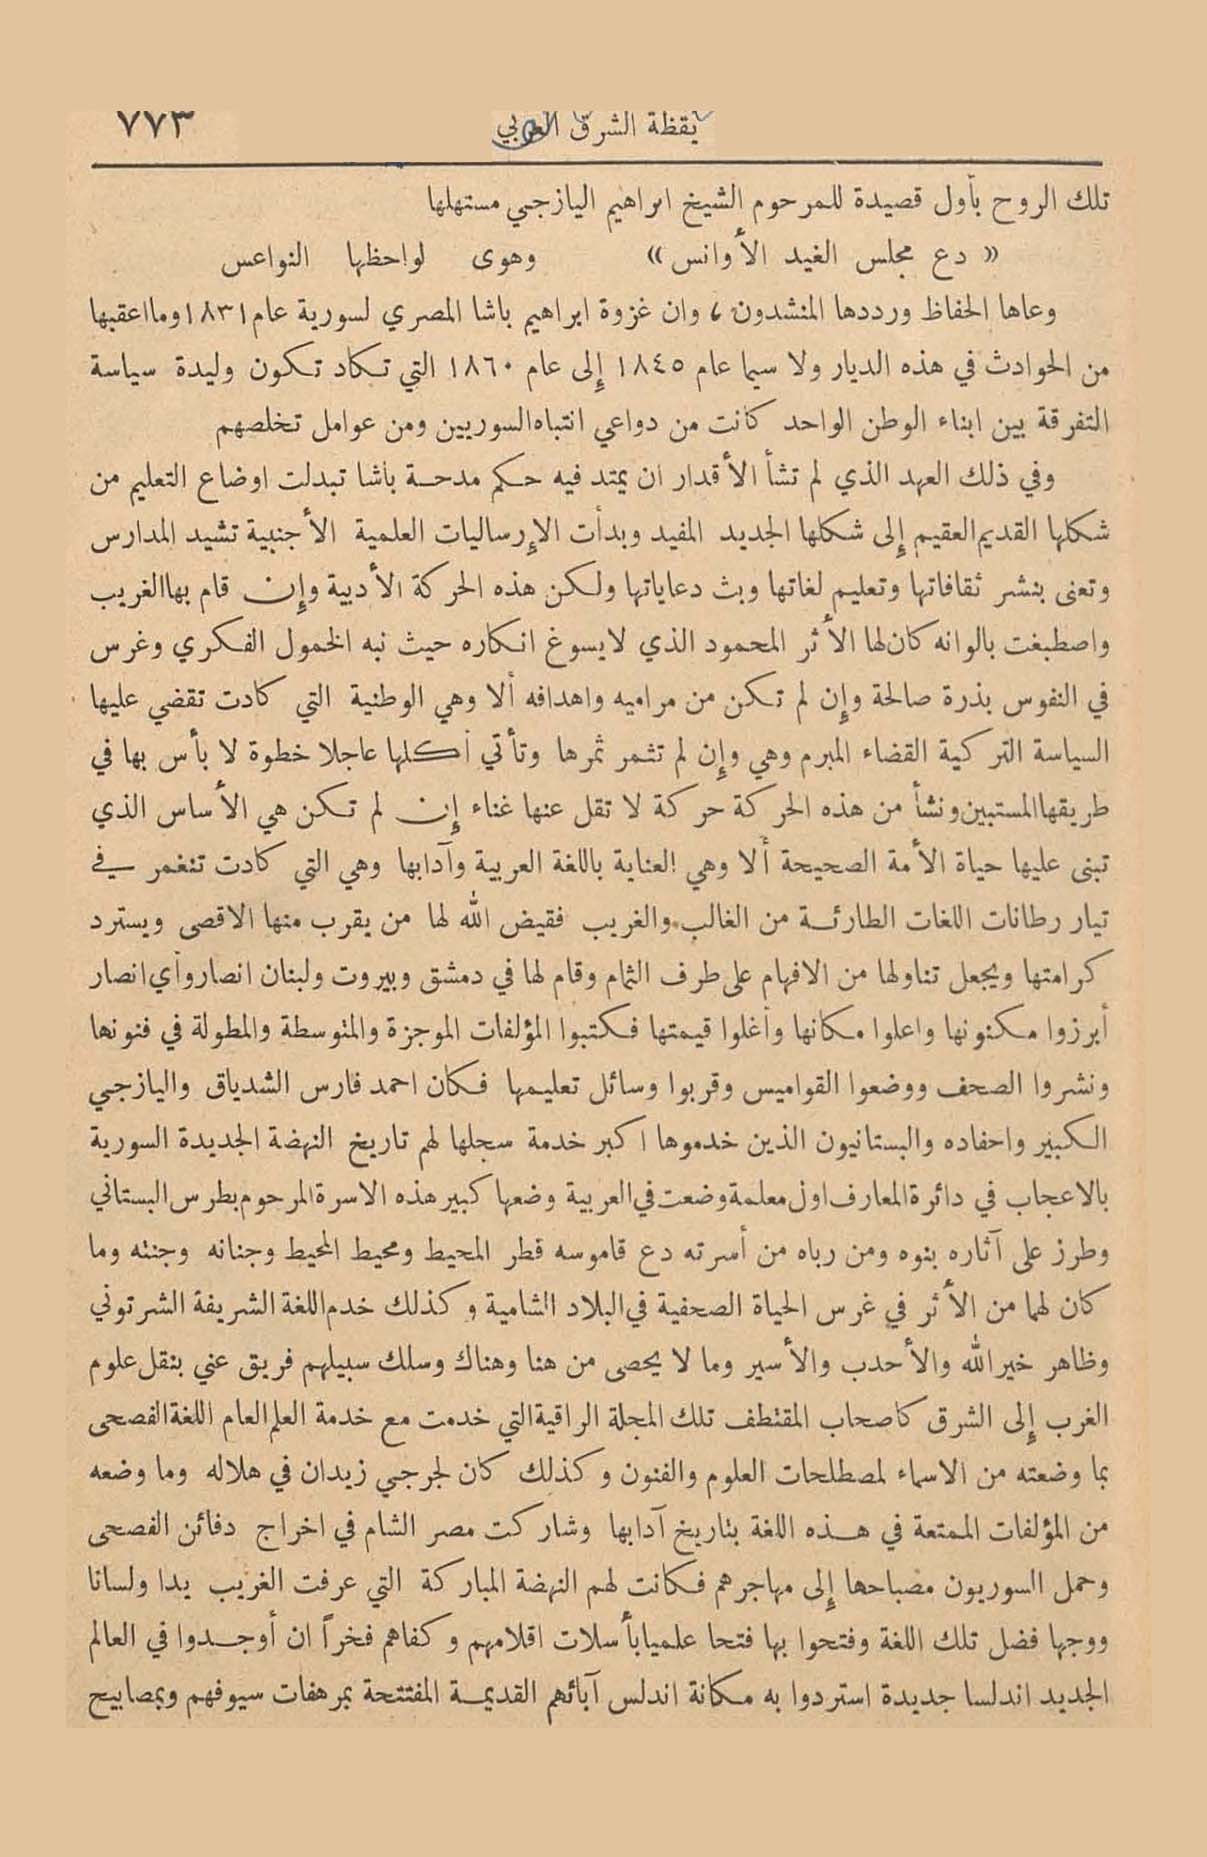 يقظة الشرق العربي ٧٧٣
تلك الروح بأول قصيدة للمرحوم الشيخ ابراهيم اليازجي مستهلها
« دع مجلس الغيد الأوانس» وهوى لواحظها النواعس
وعاها الحفاظ ورددها المنشدون، وان غزوة ابراهيم باشا المصري لسورية عام ١٨٣١ وما اعقبها
من الحوادث في هذه الديار ولا سيما عام ١٨٤٥ إلى عام ١٨٦٠ التي تكاد تكون وليدة سياسة
التفرقة بين ابناء الوطن الواحد كانت من دواعي انتباه السوريين ومن عوامل تخلصهم
وفي ذلك العهد الذي لم تشأ الأقدار ان يمتد فيه حكم مدحة باشا تبدلت اوضاع التعليم من
شكلها القديم العقيم إلى شكلها الجديد المفيد وبدأت الإرساليات العلمية الأجنبية تشيد المدارس
وتعنى بنشر ثقافاتها وتعليم لغاتها وبث دعاياتها ولكن هذه الحركة الأدبية وإن قام بها الغريب
واصطبغت بالوانه كان لها الأثر المحمود الذي لا يسوغ انكاره حيث نبه الخمول الفكري وغرس
في النفوس بذرة صالحة وإن لم تكن من مراميه واهدافه ألا وهي الوطنية التي كادت تقضي عليها
السياسة التركية القضاء المبرم وهي وإن لم تثمر ثمرها وتأتي أكلها عاجلا خطوة لا بأس بها في
طريقها المستبين ونشأ من هذه الحركة حركة لا تقل عنها غناء إن لم تكن هي الأساس الذي
تبنى عليها حياة الأمة الصحيحة ألا وهي العناية باللغة العربية وآدابها وهي التي كادت تنغمر في
تيار رطانات اللغات الطارئة من الغالب والغريب فقيض الله لها من يقرب منها الاقصى ويسترد
كرامتها ويجعل تناولها من الافهام على طرف الثمام وقام لها في دمشق وبيروت ولبنان انصار وأي انصار
أبرزوا مكنونها واعلوا مكانها وأغلوا قيمتها فكتبوا المؤلفات الموجزة والمتوسطة والمطولة في فنونها
ونشروا الصحف ووضعوا القواميس وقربوا وسائل تعليمها فكان احمد فارس الشدياق واليازجي
الكبير واحفاده والبستانيون الذين خدموها اكبر خدمة سجلها لهم تاريخ النهضة الجديدة السورية
بالاعجاب في دائرة المعارف اول معلمة وضعت في العربية وضعها كبير هذه الاسرة المرحوم بطرس البستاني
وطرز على آثاره بنوه ومن رباه من أسرته دع قاموسه قطر المحيط ومحيط المحيط وجنانه وجنته وما
كان لهما من الأثر في غرس الحياة الصحفية في البلاد الشامية وكذلك خدم اللغة الشريفة الشرتوني
وظاهر خير الله والأحدب والأسير وما لا يحصى من هنا وهناك وسلك سبيلهم فريق عني بنقل علوم
الغرب إلى الشرق كاصحاب المقتطف تلك المجلة الراقية التي خدمت مع خدمة العلم العام اللغة الفصحى
بما وضعته من الاسماء لمصطلحات العلوم والفنون وكذلك كان لجرجي زيدان في هلاله وما وضعه
من المؤلفات الممتعة في هذه اللغة بتاريخ آدابها وشاركت مصر الشام في اخراج دفائن الفصحى
وحمل السوريون مصباحها إلى مهاجرهم فكانت لهم النهضة المباركة التي عرفت الغريب يدا ولسانا
ووجها فضل تلك اللغة وفتحوا بها فتحا علميا بأسلات اقلامهم وكفاهم فخراً ان أوجدوا في العالم
الجديد اندلسا جديدة استردوا به مكانة اندلس آبائهم القديمة المفتتحة بمرهفات سيوفهم وبمصابيح